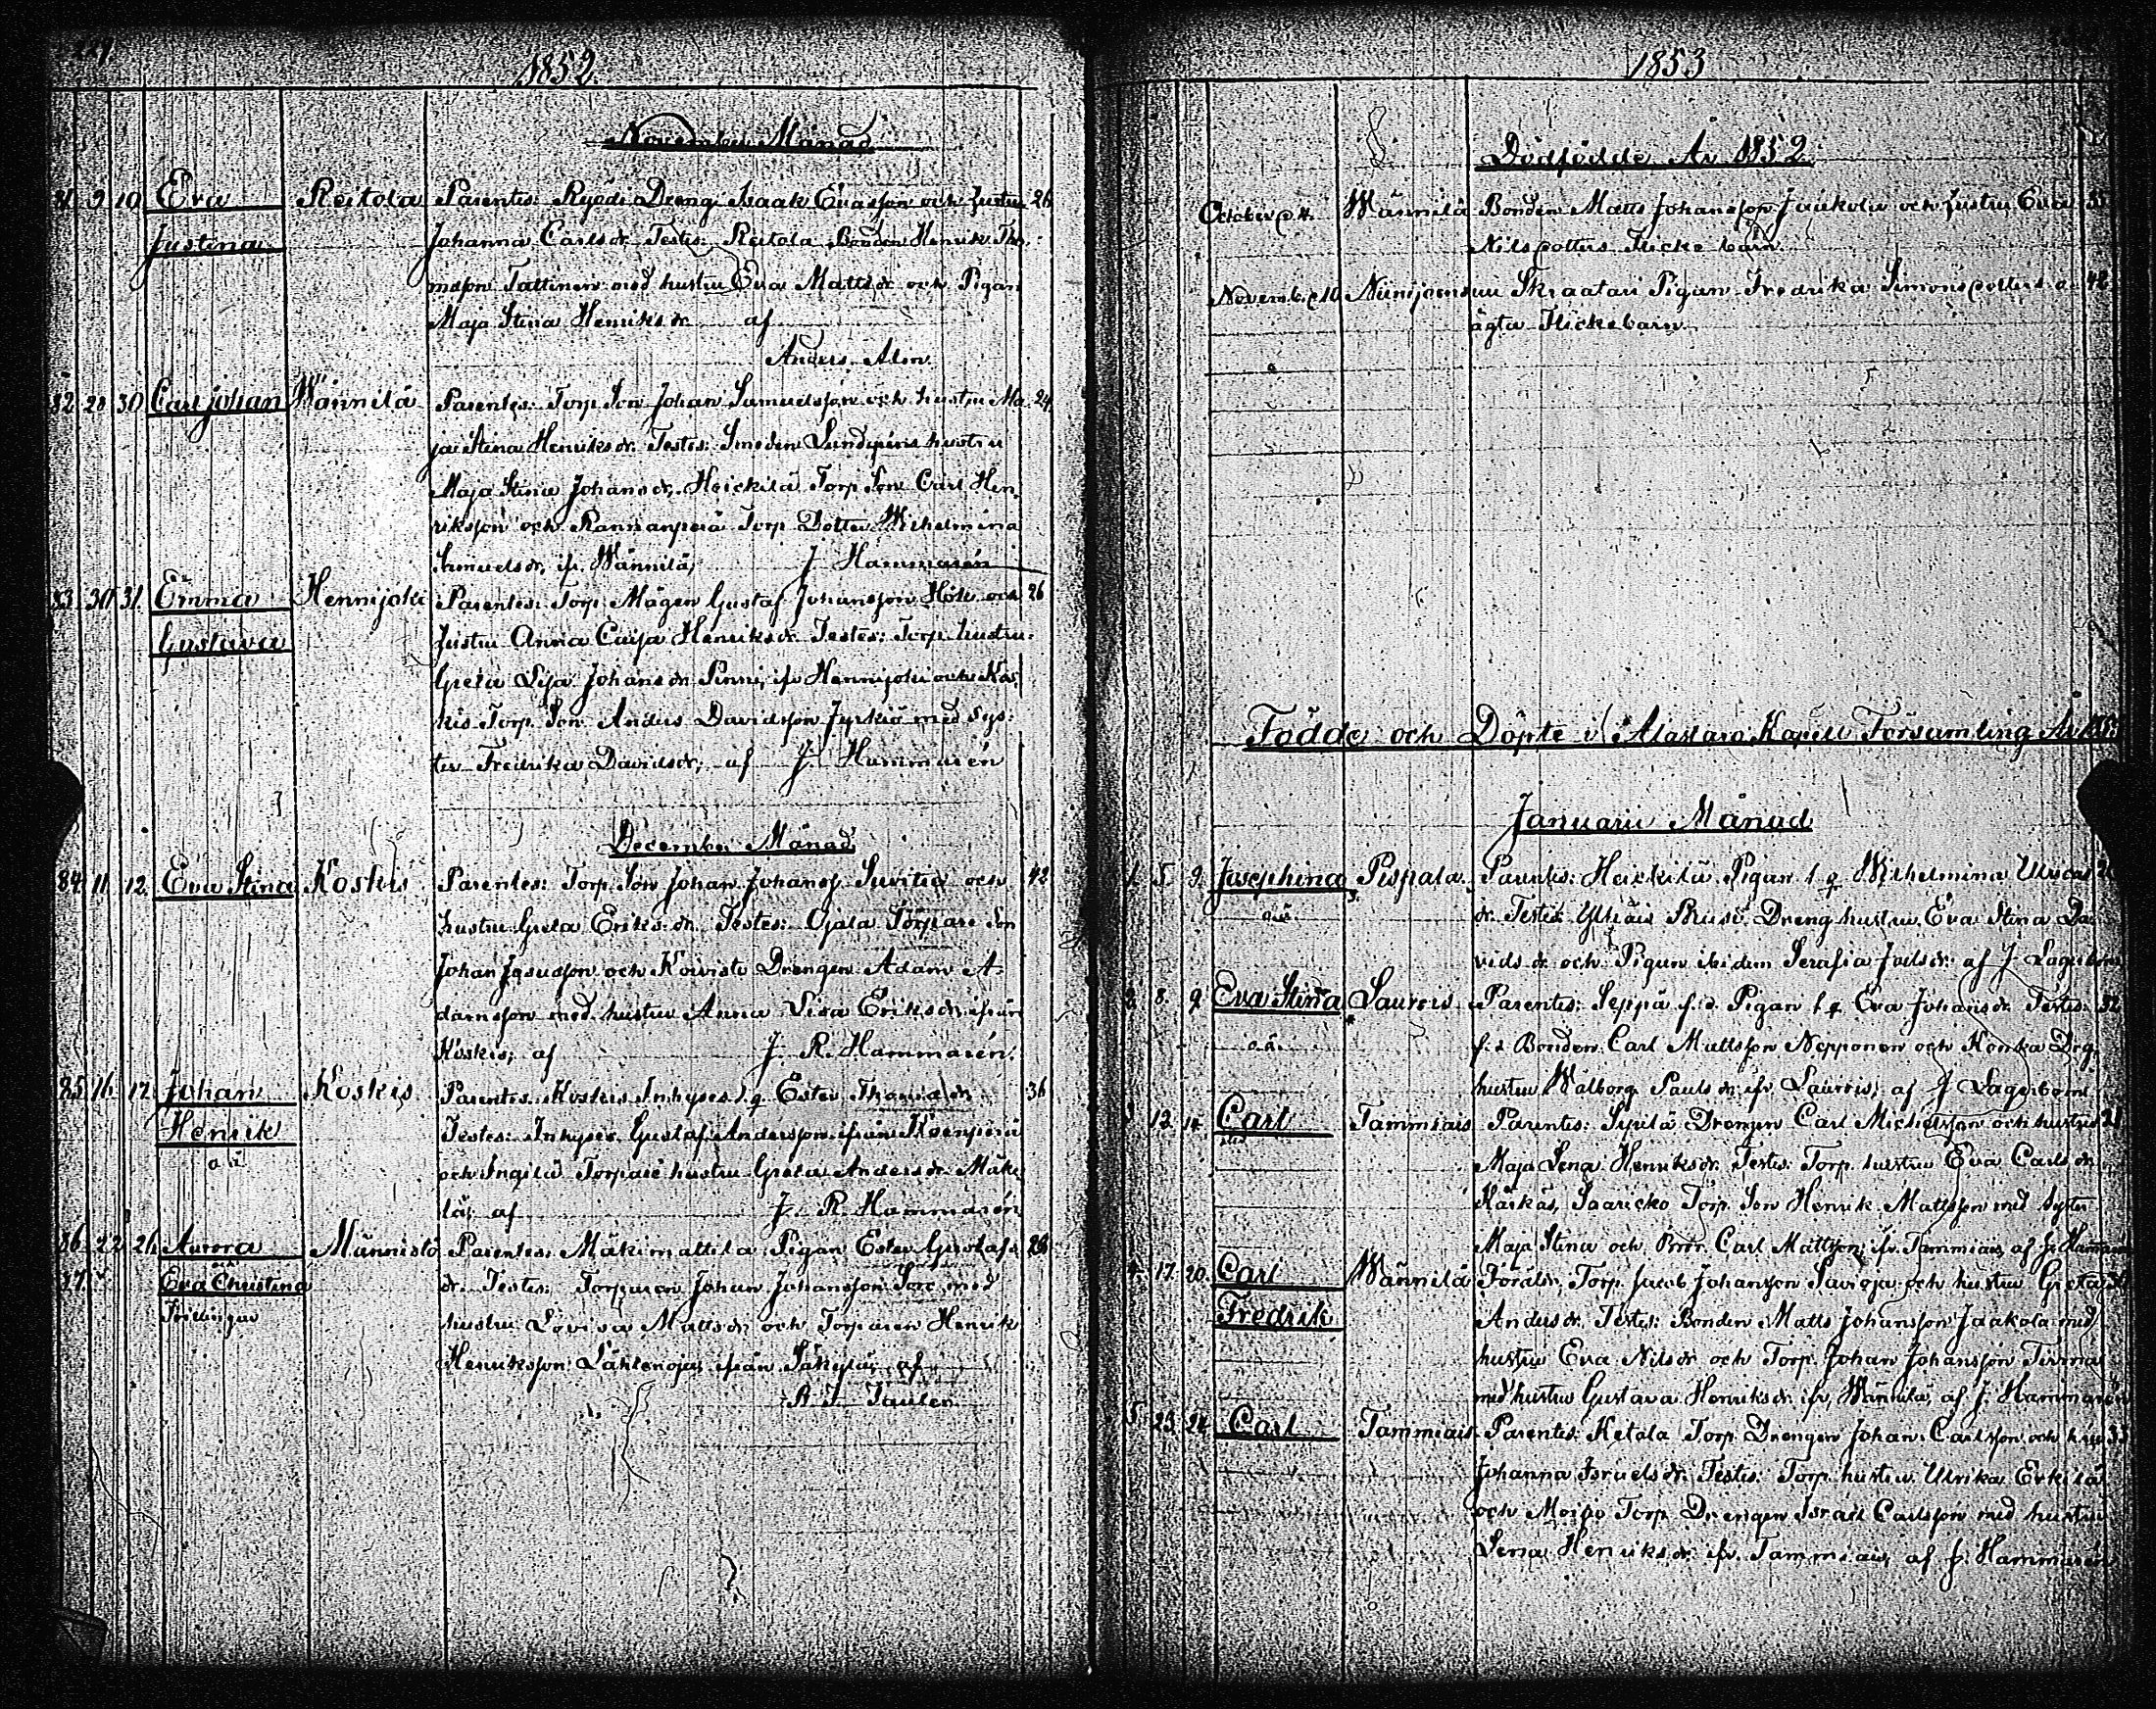 1852
November Månad
81. 9. 10. Eva Reitola Parentes: Ryödi Dreng Isaak Evasson och hustru 26
Justina Johanna Carlsdr. Testes: Reitola Bonden Henrik Tho,
masson Tattinen med hustru Eva Mattsdr och Pigan
Maja Stina Henriksdr af
Anders Alin
82. 28 30 Carl Johan Wännilä Parentes: Torp Son Johan Samuelsson och hustru Ma 24
ja Stina Henriksdr. Testes: Smeden hustru
Maja Stina Johansdr, Heickilä Torp Son Carl Hen,
riksson och Torp Dotter Wilhelmina
Samuelsdr, ifr. Wännilä, J Hammarén
83. 30 31. Emma Hennijoki Parentes: Torp Mågen Gustaf Johansson Höli och 26
Gustava hustru Anna Caisa Henriksdr Testes: Torp hustru
Greta Lisa Johansdr Pinni, ifr Hennijoki och Kos,
kis Torp Son Anders Davidsson Jyrkiö med Sys:
ter Fredrika Davidsdr, af J. Hammarén
December Månad
84. 11. 12. Eva Stina Koskis Parentes: Torp Son Johan Johanss. och 42
hustru Greta Eriksdr. Testes: Ojala Torpare Son
Johan Josuasson och Koivisto Drengen Adam A-
damsson med hustru Anna Lisa Eriksdr. ifrån
Koskis, af J. R. Hammarén.
85. 16. 17. Johan Koskis Parentes: Koskis Inhyses l. q Ester dr. 36
Henrik Testes: Inhyses Gustaf Andersson ifrån
o ä och Ingilä Torpare hustru Greta Andersdr Mäke
lä, af J. R. Hammarén
86. 22 26 Aurora Männistö Parentes: Mäkimattila Pigan Ester Gustafs 28
87. Eva Christina dr. Testes: Torparen Johan Johansson med
Tvillingar hustru Lovisa Mattsdr och Torparen Henrik
Henriksson Lähtenoja, ifrån Säkylä, af
R. J. Taulen
1853
Dödfödde År 1852
October d. 4. Wännilä Bonden Matts Johansson Jaakola och hustru Eva 35
Nilsdotters Flicke barn
November d 10 Niinijoensuu Skraatari Pigan Fredrika Simonsdotters o 42
ägta Flickebarn
Födde och Döpte i Alastaro Kapell Församling År 1853
Januarii Månad
1. 5. 9. Josephina Pispala Parentes: Heickilä Pigan l q Wilhelmina
o.ä. dr. Testes: Dreng hustru Eva Stina Da
vids dr och Pigan ibidem Serafia dr. af J Lagerbom
2. 8. 9. Eva Stina Laurois Parentes: Seppä f.d. Pigan l q Eva Johansdr Testes: 32
o.ä. f.d Bonden Carl Mattsson Nepponen och Konka Drg.
hustru Walborg Paulsdr. ifr. Laurois, af J Lagerbom
3 12. 14 Carl Tammiais Parentes: Syrilä Drengen Carl Michelsson och hustru 21
Maja Lena Henriksdr. Testes: Torp. hustru Eva Carlsdr
Karkas, Saaricko Torp Son Henrik Mattsson med Syster
Maja Stina och Bror Carl Mattsson, ifr. Tammiais, af J. Hammarén
4. 17. 20. Carl Wännilä Föräldr, Torp Jacob Johansson Savioja och hustru Greta
Fredrik Andersdr. Testes: Bonden Matts Johansson Jaakola med
hustru Eva Nilsdr och Torp. Johan Johansson
med hustru Gustava Henriksdr. ifr, Wännilä, af J. Hammarén
5 23. 24. Carl Tammiais Parentes: Ketola Torp. Drengen Johan Carlsson och hru 33
Johanna Israelsdr. Testes: Torp. hustru Ulrika Erkilä
och Moisio Torp Drengen Israel Carlsson med hustru
Lena Henriksdr. ifr. Tammiais, af J. Hammarén